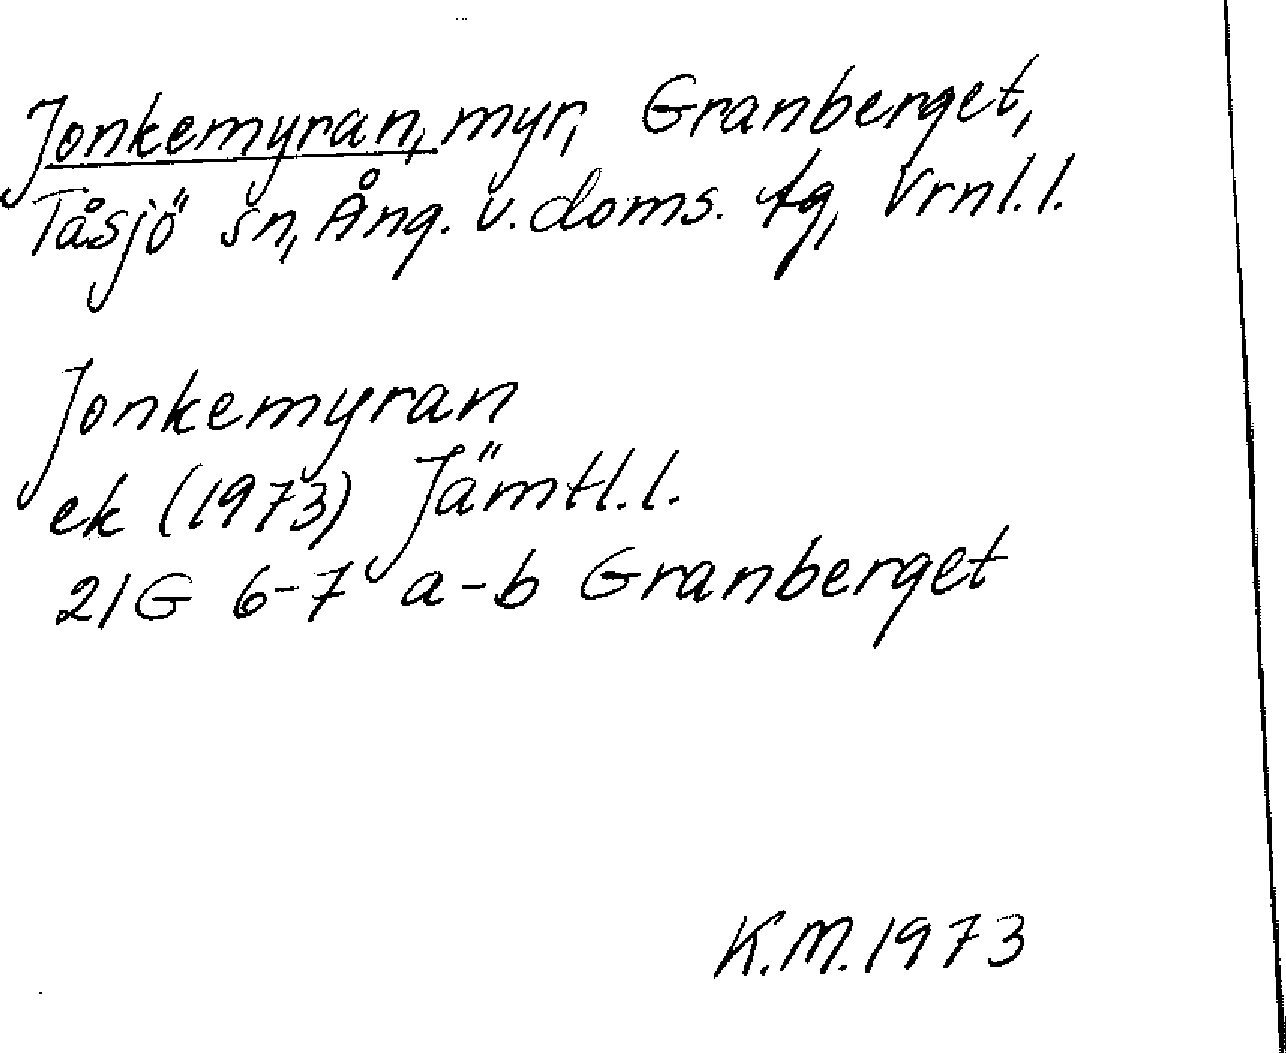 Jonkemyran, myr, Granberget,
Tåsjö sn, Ång. v. doms. tg, Vrnl. l.
Jonkemyran
ek (1973) Jämtl. l.
21G 6-7 a-b Granberget
K.M. 1973